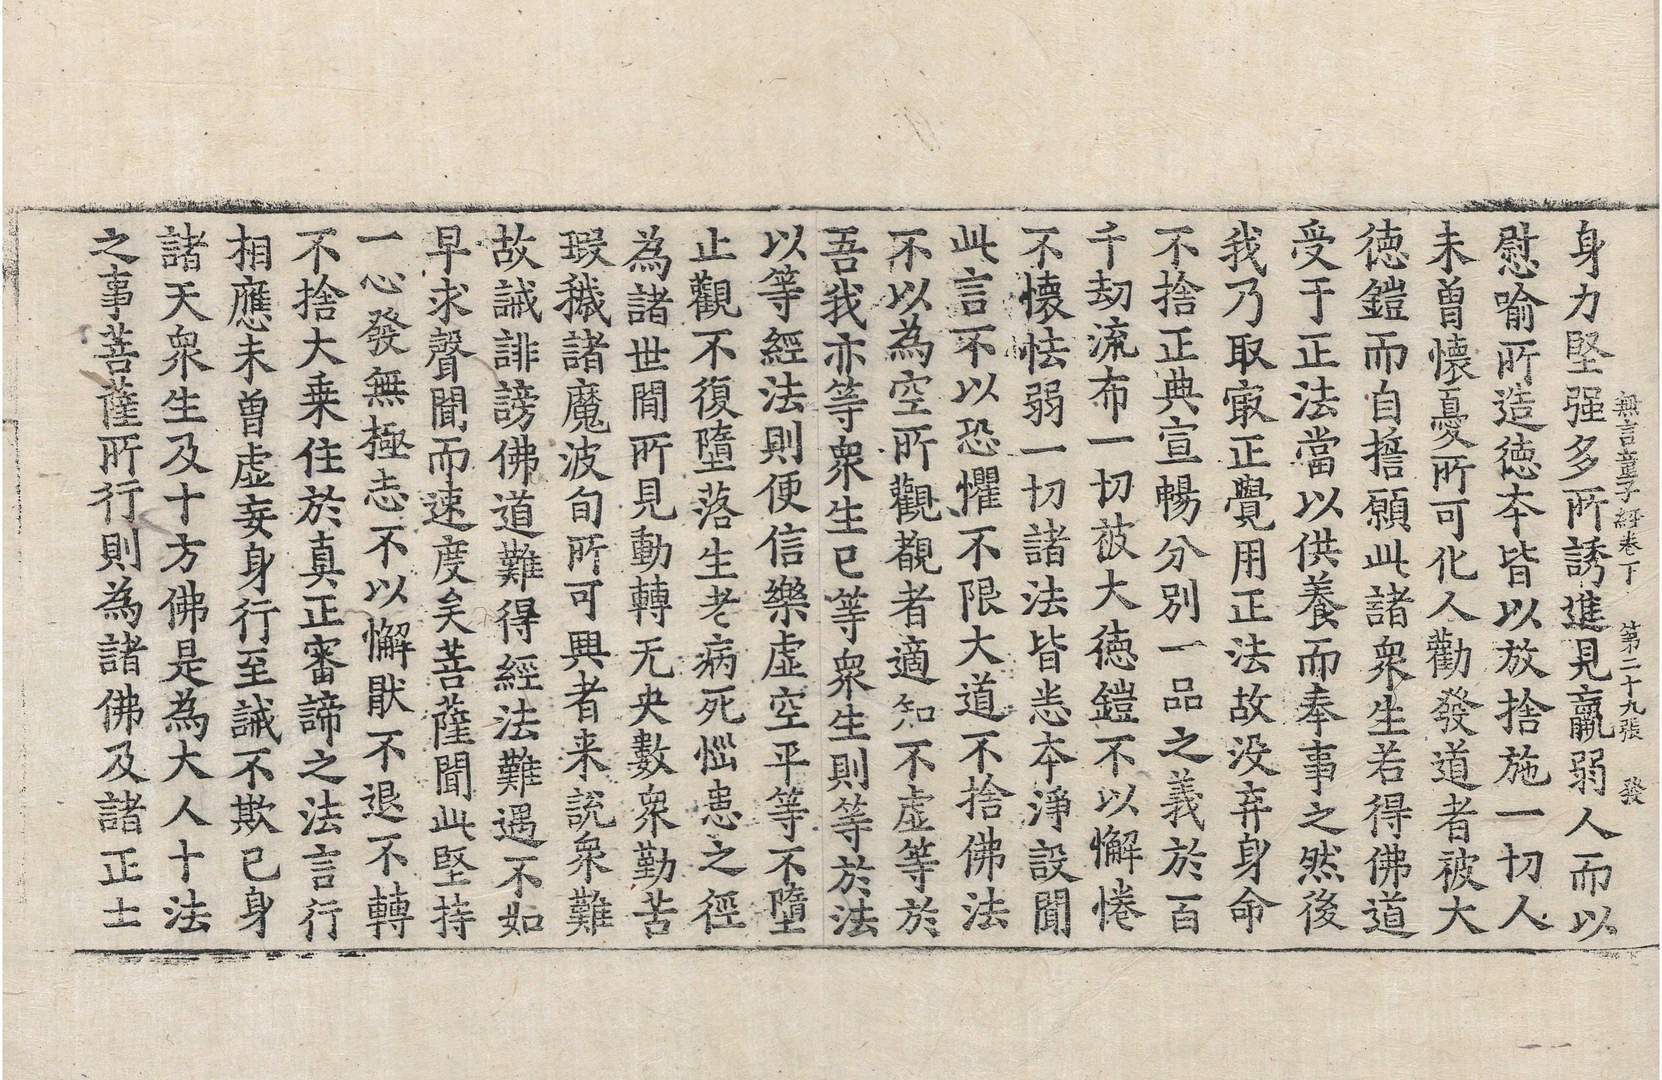 無言童子經卷下 第二十九張 發
身力堅强多所誘進見羸弱人而以
慰喻所造德本皆以放捨施一切人
未曾懷憂所可化人勸發道者被大
德鎧而自擔願此諸衆生若得佛道
受于正法當以供養而奉事之然後
我乃取㝡正覺用正法故没弃身命
不捨正典宣暢分別一品之義於百
千劫流布一切被大德鎧不以懈惓
不懷怯弱一切諸法皆悉本淨設聞
此言不以恐懼不限大道不捨佛法
不以為空所觀覩者適知不虛等於
吾我亦等衆生已等衆生則等於法
以等經法則便信樂虛空平等不墮
止觀不復墮落生老病死惱患之徑
為諸世間所見動轉无央數衆勤苦
瑕穢諸魔波旬所可興者来説衆難
故誡誹謗佛道難得經法難遇不如
早求聲聞而速度矣菩薩聞此堅持
一心發無極志不以懈猒不退不轉
不捨大乗住於真正審諦之法言行
相應未曾虛妄身行至誠不欺已身
諸天衆生及十方佛是為大人十法
之事菩薩所行則為諸佛及諸正士